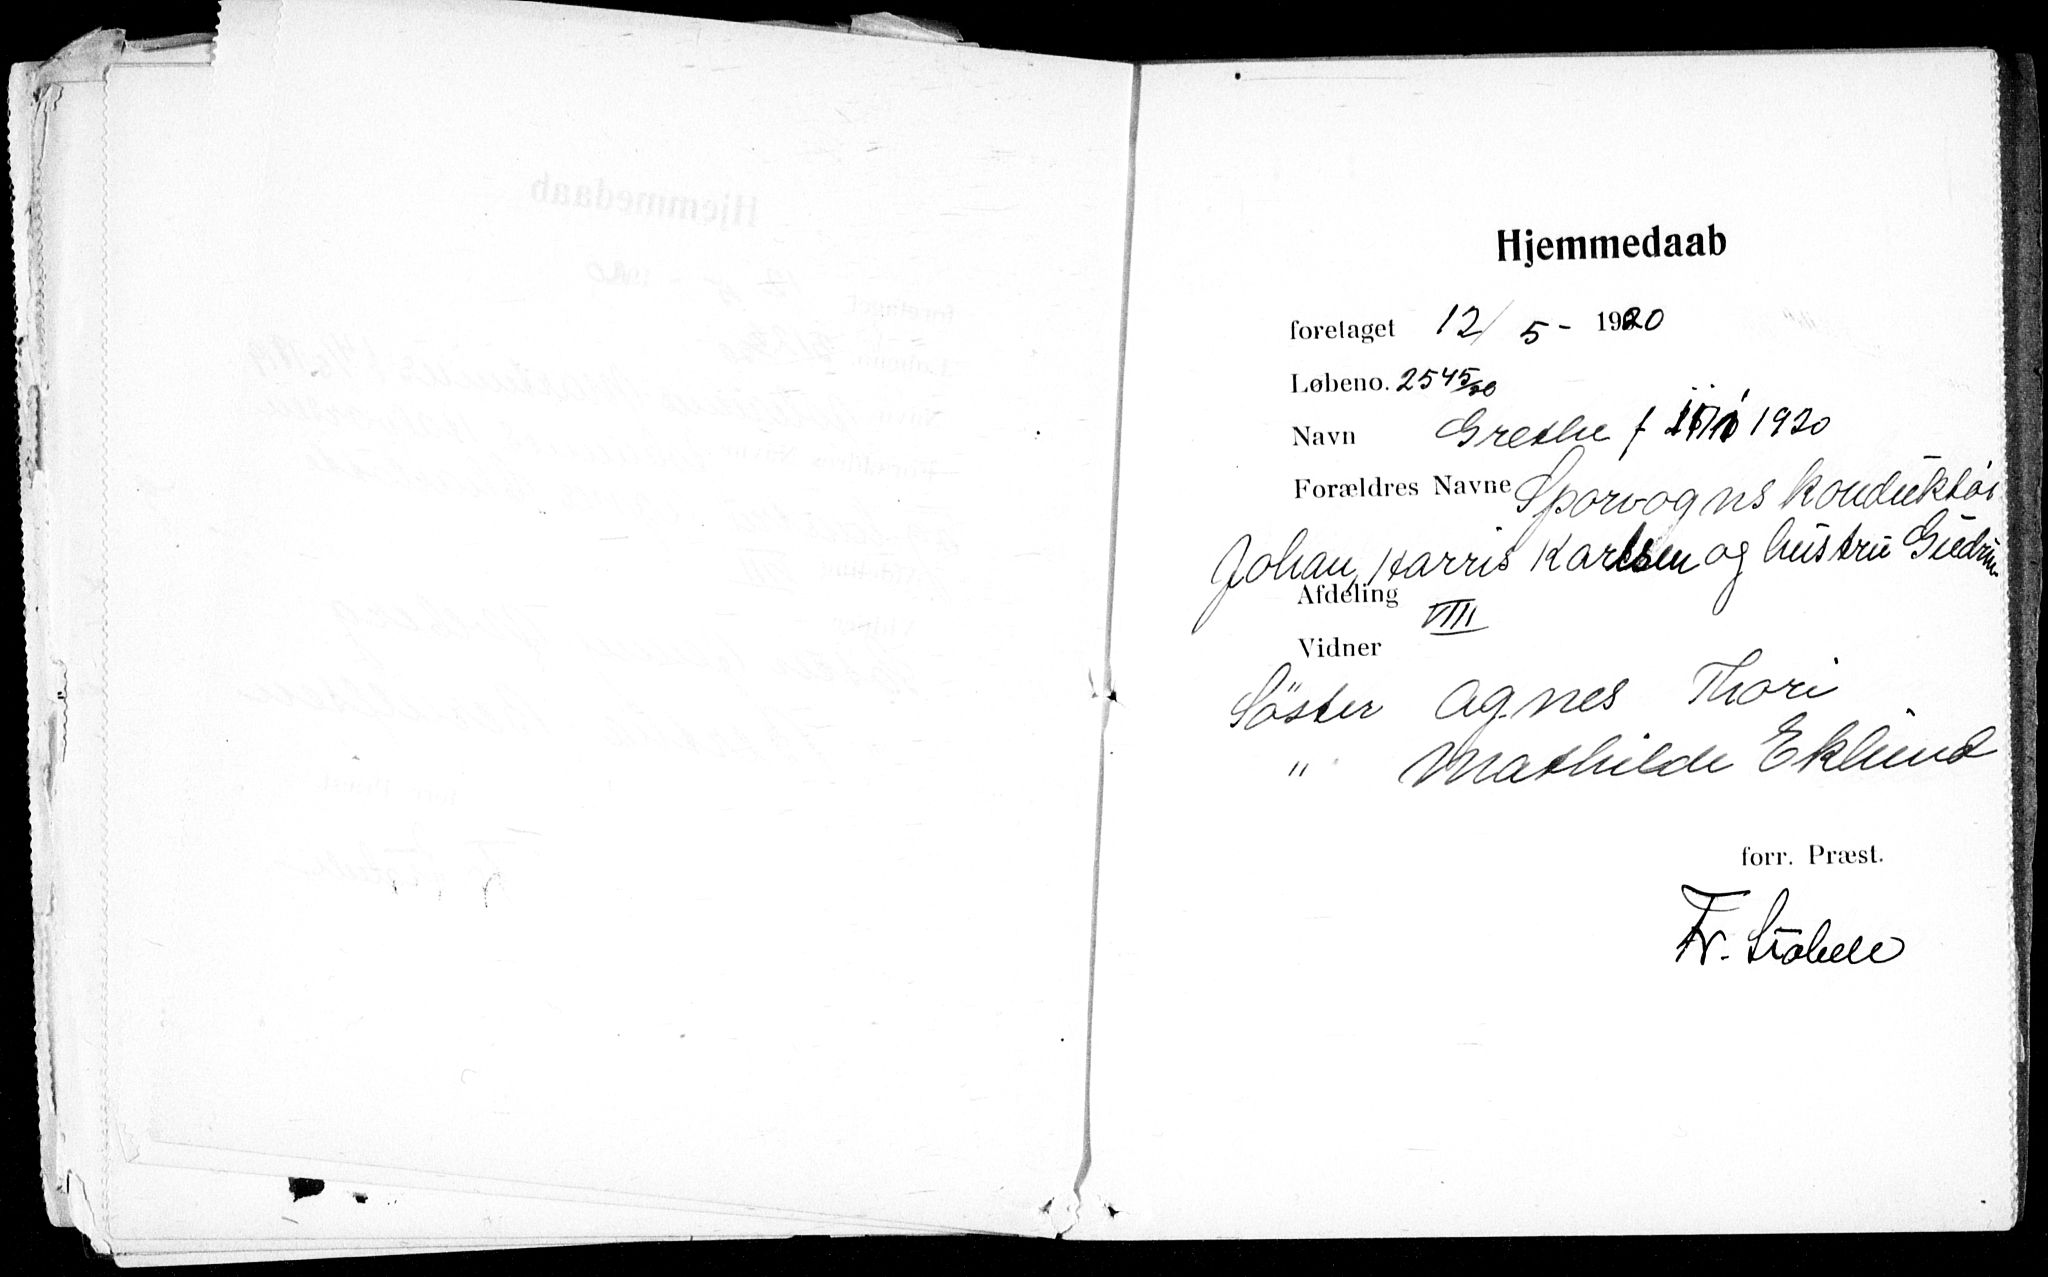 Hjemmedaab
foretaget 12/5 - 1920
Løbeno. 2545/20
Navn Grethe f 1920
Forældres Navne Sporvognskonduktør
Johan Harris Karlsen og hustru Gudrun
Afdeling VIII
Vidner
Söster Agnes Thori
" Mathilde Eklund
forr. Præst.
Fr.